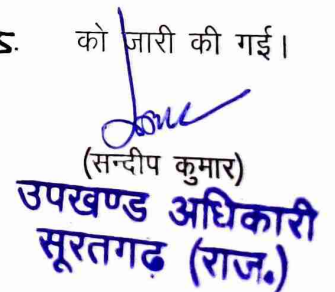 5. को जारी की गई।
(सन्दीप कुमार)
उपखण्ड अधिकारी
सूरतगढ़ (राज.)